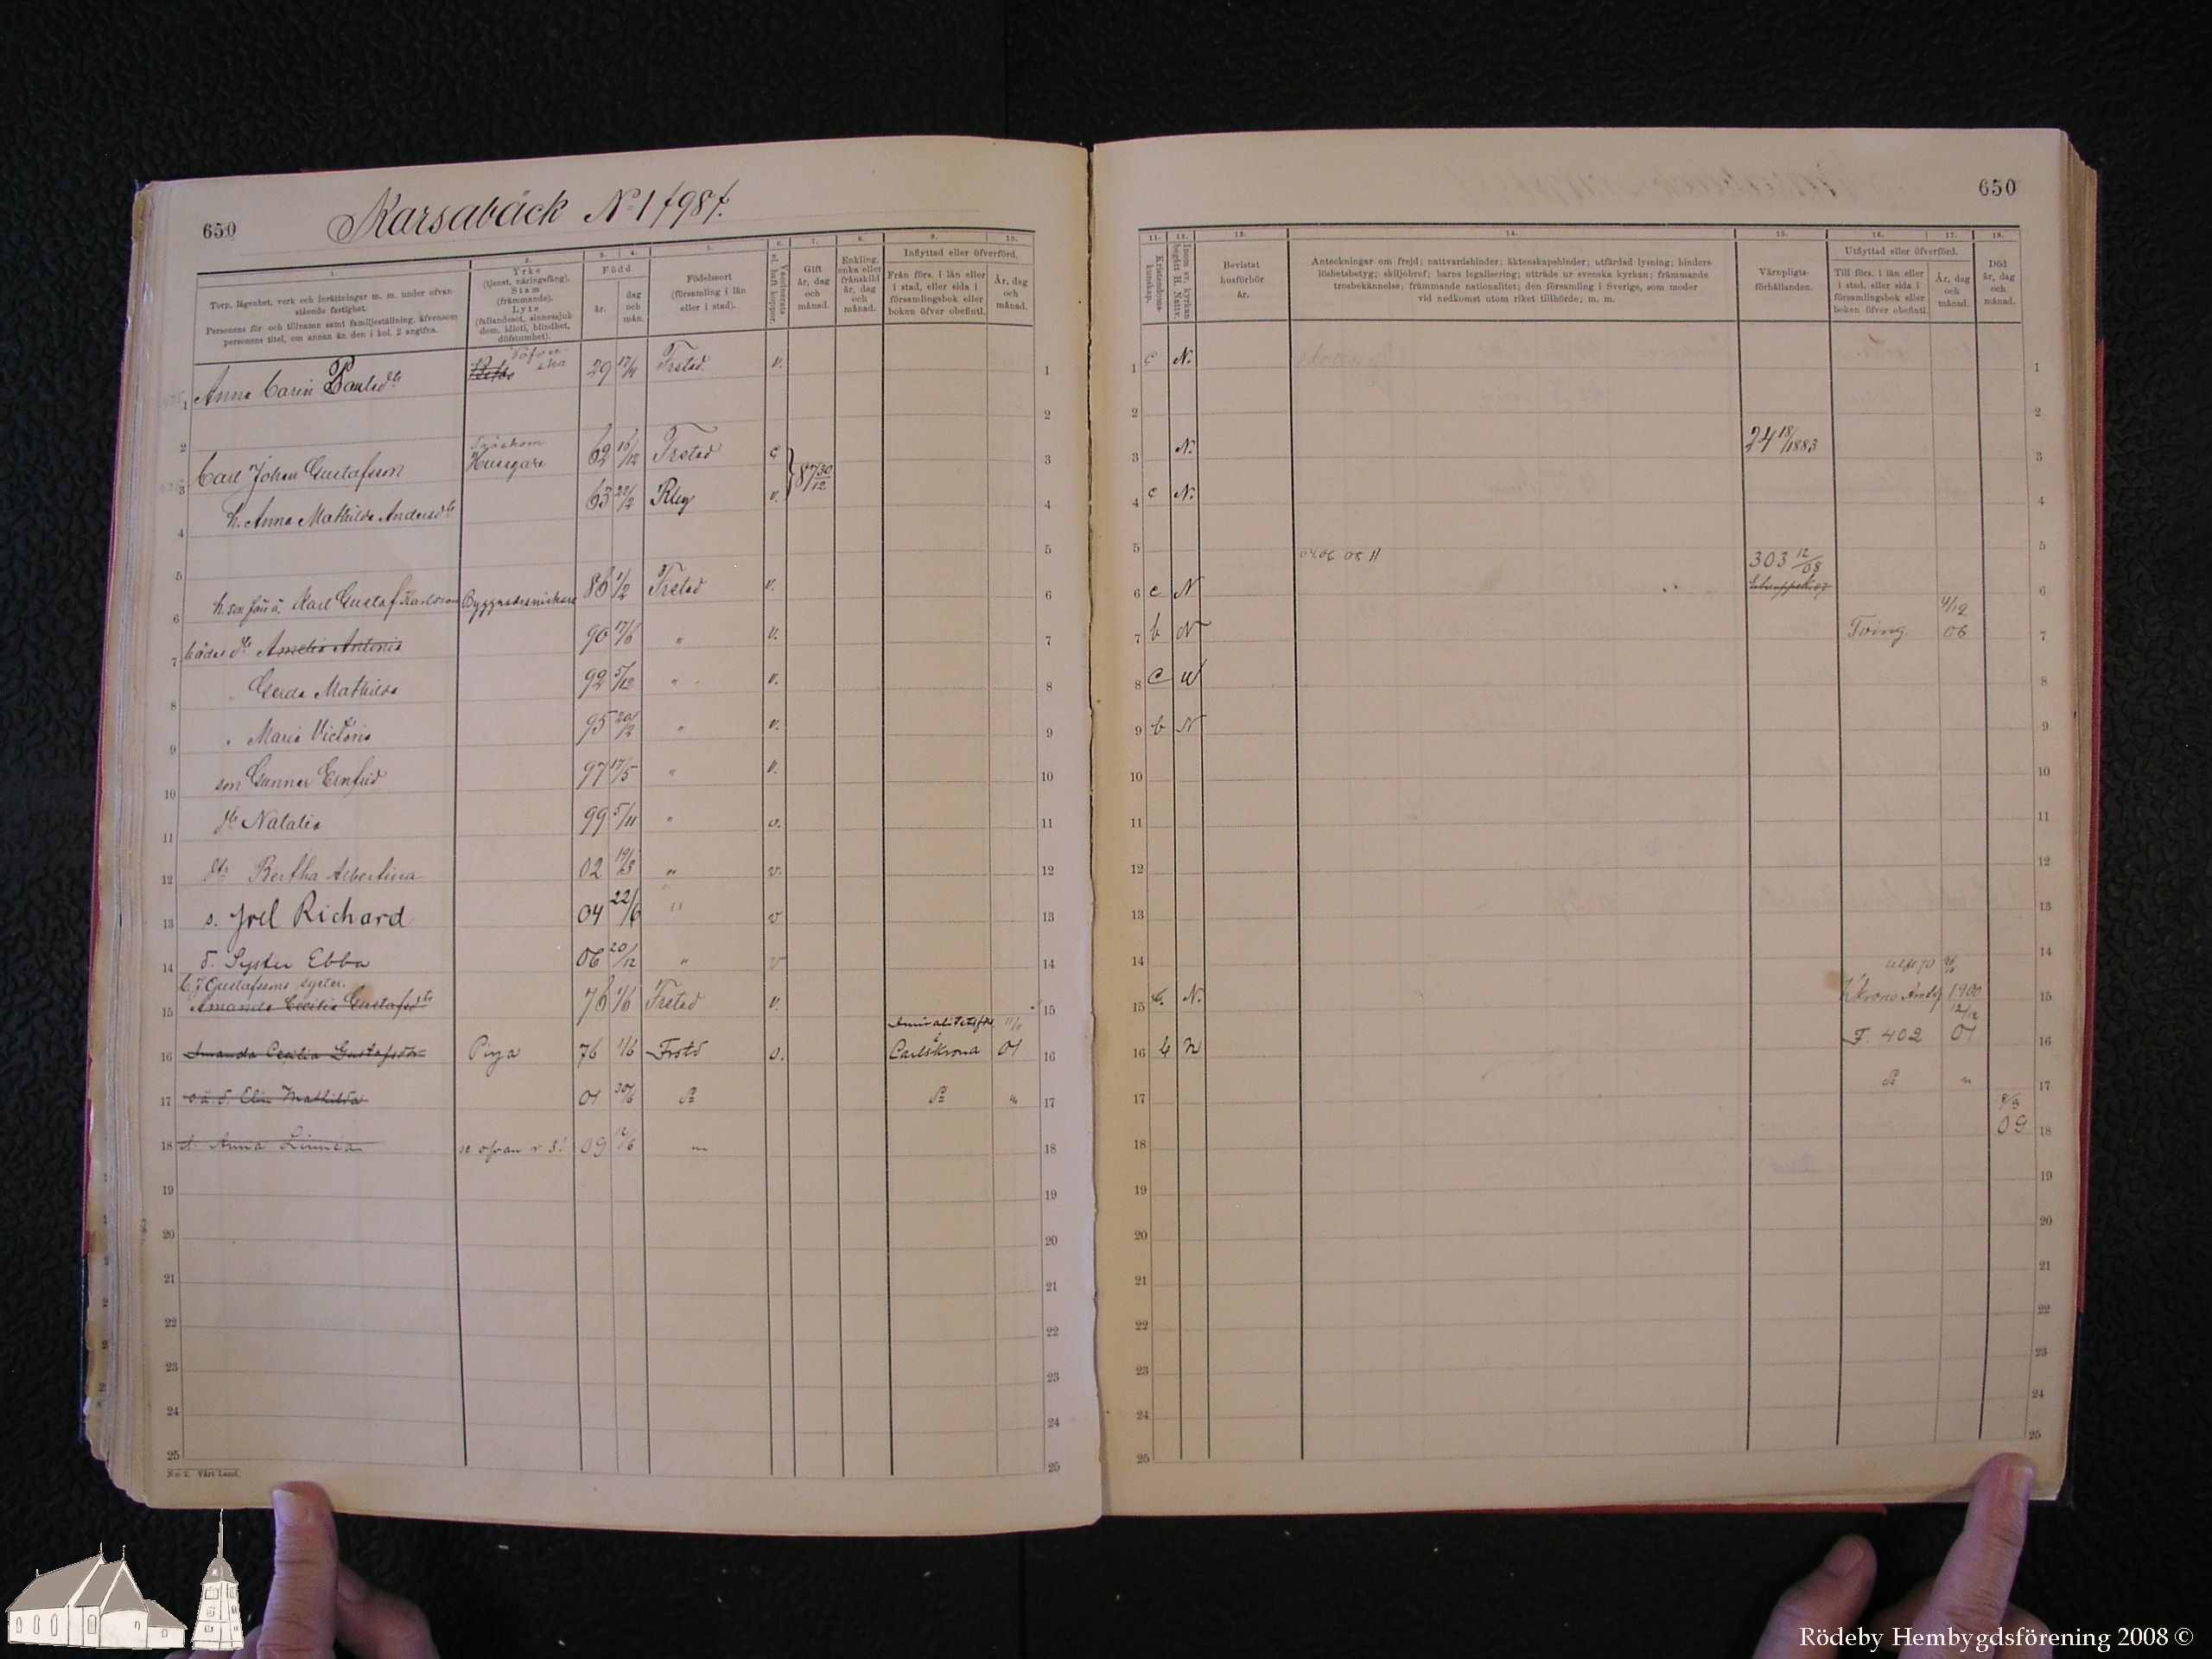 650
Karsabäck No 1 /98/.
1.
Torp, lägenhet, verk och inrättningar m. m. under ofvan-
stående fastighet.
Personens för- och tillnamn samt familjeställning, äfvensom
personens titel, om annan än den i kol. 2 angifna.
2.
Yrke
(tjenst, näringsfång).
Stam
(främmande).
Lyte
(fallandesot, sinnessjuk-
dom, idioti, blindhet,
döfstumhet).
3. 4.
Född
år. dag och mån.
5.
Födelseort
(församling i län
eller i stad).
6.
Vaccinerats
el. haft koppor.
7.
Gift
år, dag
och
månad.
8.
Enkling,
enka eller
frånskild
år, dag
och
månad.
9. 10.
Inflyttad eller öfverförd.
Från förs. i län eller
i stad, eller sida i
församlingsbok eller
boken öfver obefintl.
År, dag
och
månad.
1 Anna Carin Paulsdtr 29 17/4 Frstad. v. 1
2 2
3 Carl Johan Gustafsson Husegare 62 16/12 Frstad c 87 30/12 3
4 h. Anna Mathilda Andersdtr 63 22/2 Rby v. 4
5 5
6 Karl Gustaf Karlsson Byggnadssnickare 86 1/2 Frstad v. 6
7 bådas dtr Amelia Antonia 90 17/6 " v. 7
8 " Gerda Mathilda 92 5/12 " v. 8
9 " Maria Victoria 95 20/12 " v. 9
10 son Gunnar Ernfrid 97 17/5 " v. 10
11 dtr Natalia 99 5/11 " v. 11
12 dtr Bertha Albertina 02 19/3 " v. 12
13 s. Joel Richard 04 22/6 " v 13
14 d. Syster Ebba 06 20/12 " v 14
C. J. Gustafssons syster.
15 Amanda Cecilia Gustafsdtr 76 1/6 Frstad v. 15
16 Amanda Cecilia Gustafsdtr Piga 76 1/6 Frstd v. Amiralitetsförs. i Carlskrona 01 16
17 o.ä.d. Elin Mathilda 01 30/6 do do " 17
18 d. Anna Linnéa se ofvan r 3! 09 12/6 " 18
19 19
20 20
21 21
22 22
23 23
24 24
25 25
N:o 2. Vårt Land.
650
11.
Kristendoms-
kunskap.
12.
Inom sv. kyrkan
begått H. Nattv.
13.
Bevistat
husförhör
år.
14.
Anteckningar om frejd; nattvardshinder; äktenskapshinder; utfärdad lysning; hinders-
löshetsbetyg; skiljobref; barns legalisering; utträde ur svenska kyrkan; främmande
trosbekännelse; främmande nationalitet; den församling i Sverige, som moder
vid nedkomst utom riket tillhörde; m. m.
15.
Värnpligts-
förhållanden.
16. 17.
Utflyttad eller öfverförd.
Till förs. i län eller
i stad, eller sida i
församlingsbok eller
boken öfver obefintl.
År, dag
och
månad.
18.
Död
år, dag
och
månad.
1 c N. 1
2 2
3 N. 24 18/1883 3
4 c N. 4
5 04 06 08 11 303 12/08 5
6 c N 6
7 b N Tving. 4/12 06 7
8 c N 8
9 b N 9
10 10
11 11
12 12
13 13
14 14
15 c. N. 1900 15
16 b N F. 402 12/12 01 16
17 do " 17
18 8/3 09 18
19 19
20 20
21 21
22 22
23 23
24 24
25 25
Rödeby Hembygdsförening 2008 ©